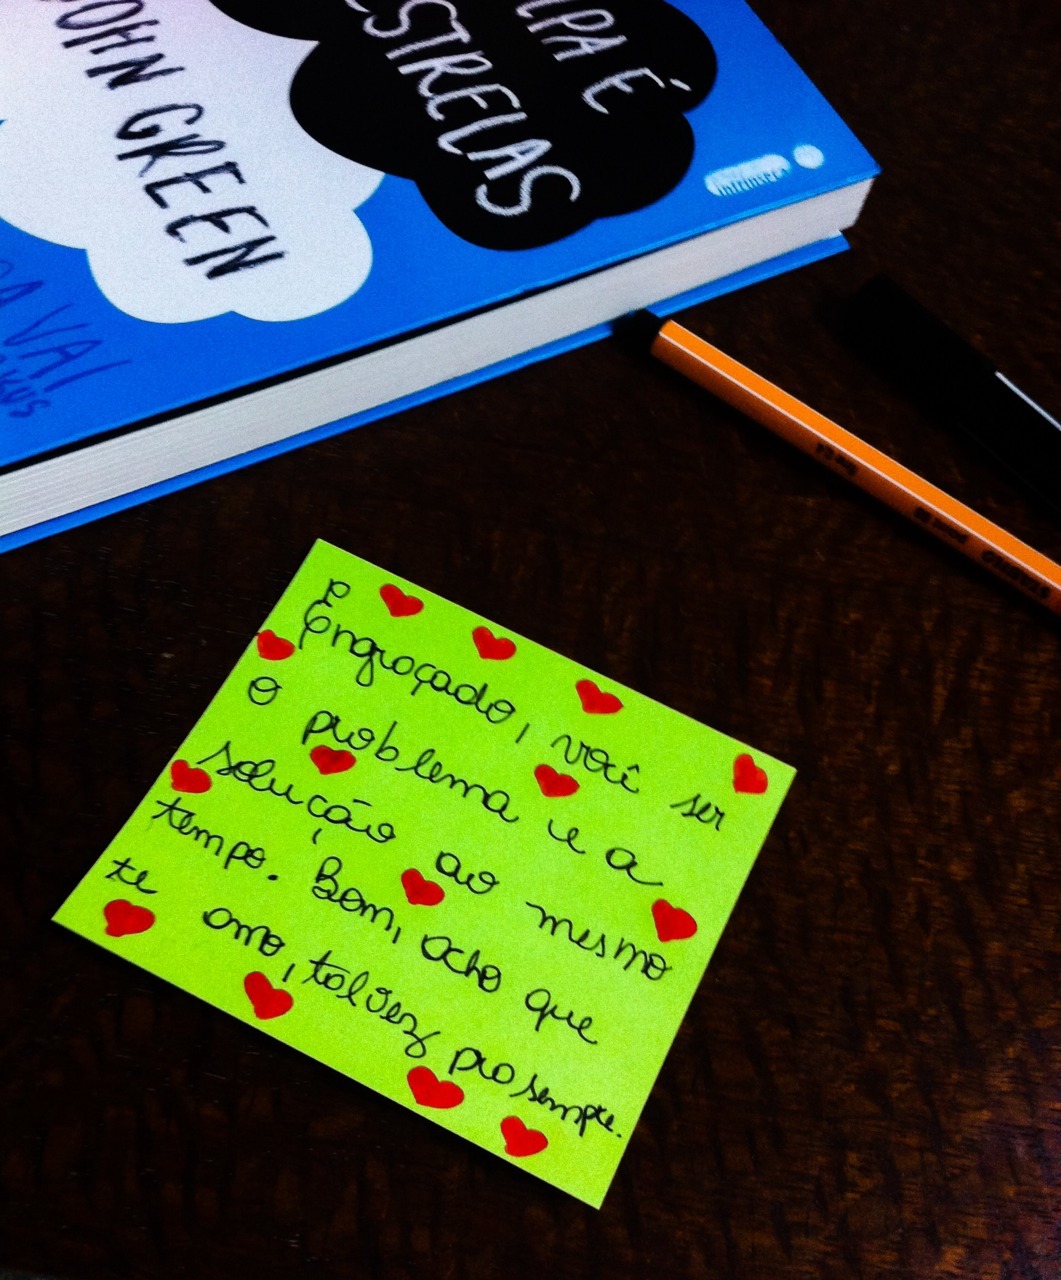 JOHN GREEN
LPA É
ESTRELAS
intrínseca
VAI
Engraçado, você ser
o problema e a
solução ao mesmo
tempo. Bom, acho que
te amo, talvez pra sempre.